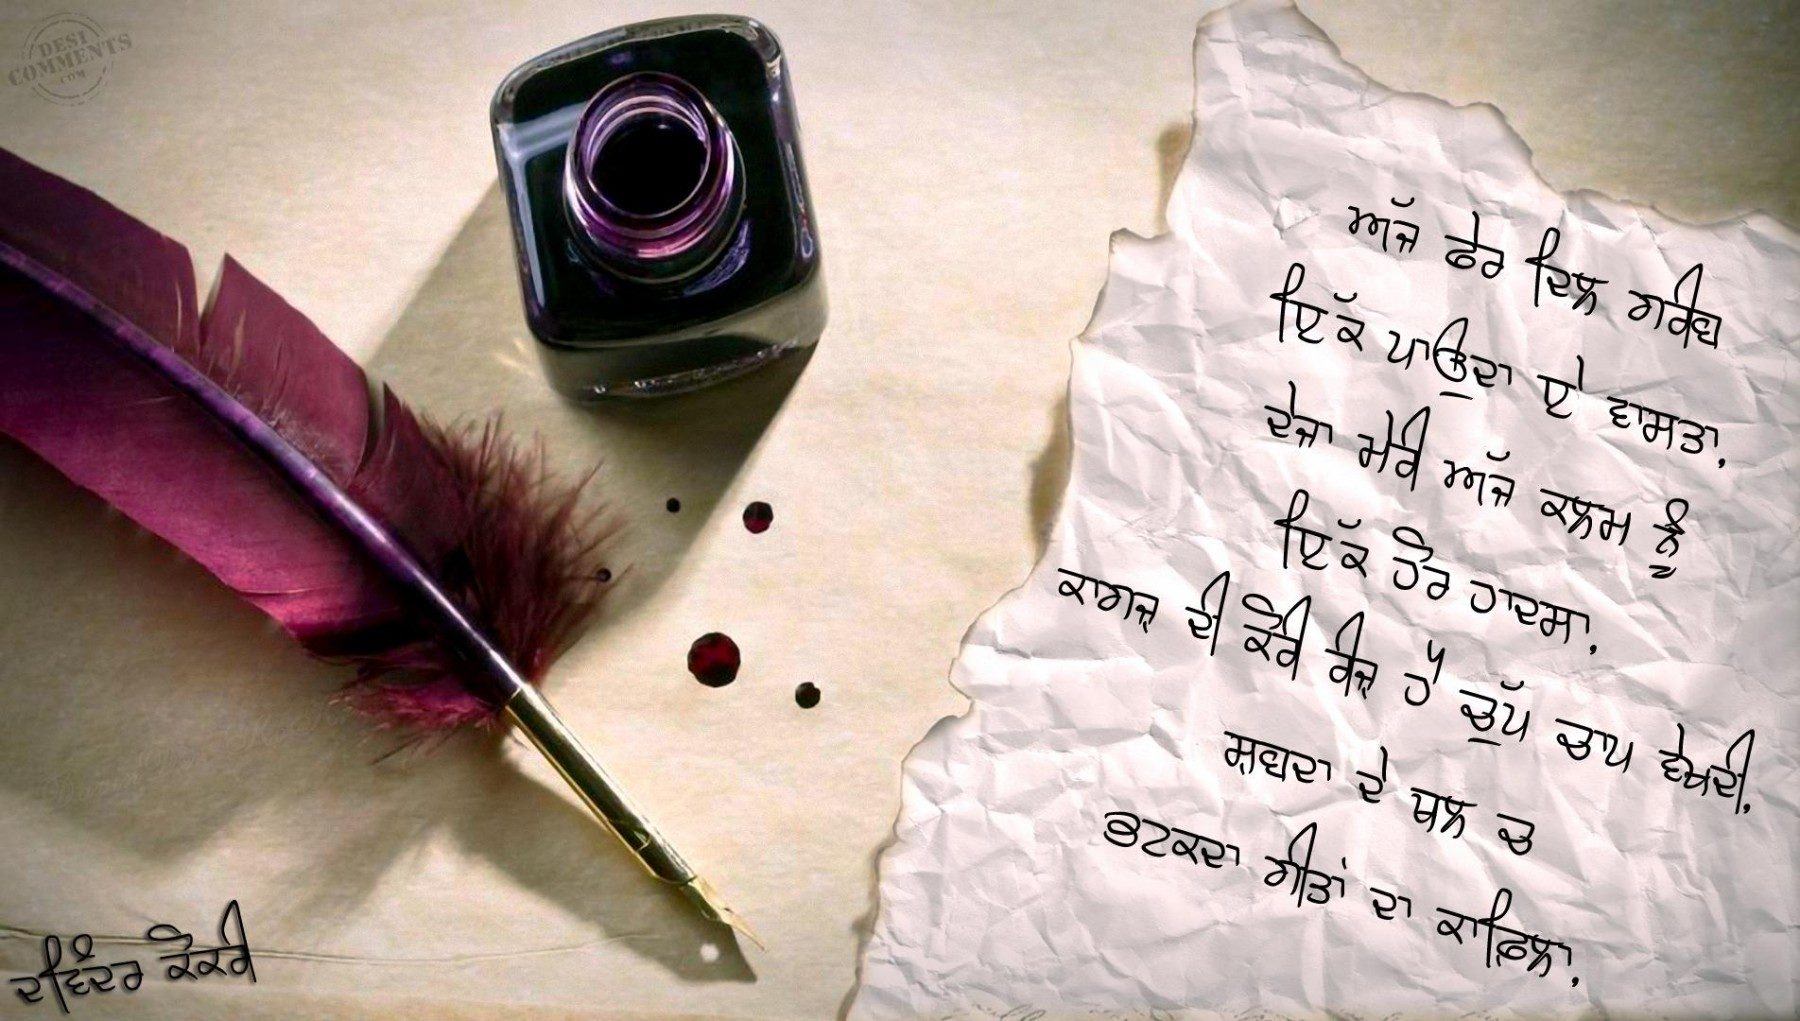 DESI
COMMENTS
.COM
ਅੱਜ ਫੇਰ ਦਿਲ ਗਰੀਬ
ਇੱਕ ਪਾਉਂਦਾ ਏ ਵਾਸਤਾ.
ਦੇਜਾ ਮੇਰੀ ਅੱਜ ਕਲਮ ਨੂੰ
ਇੱਕ ਹੋਰ ਹਾਦਸਾ.
ਕਾਗਜ਼ ਦੀ ਕੋਰੀ ਰੀਜ਼ ਹੈ ਚੁੱਪ ਚਾਪ ਵੇਖਦੀ.
ਸ਼ਬਦਾ ਦੇ ਥਲ ਚ
ਭਟਕਦਾ ਗੀਤਾਂ ਦਾ ਕਾਫ਼ਿਲਾ.
ਦਵਿੰਦਰ ਕੋਕਰੀ